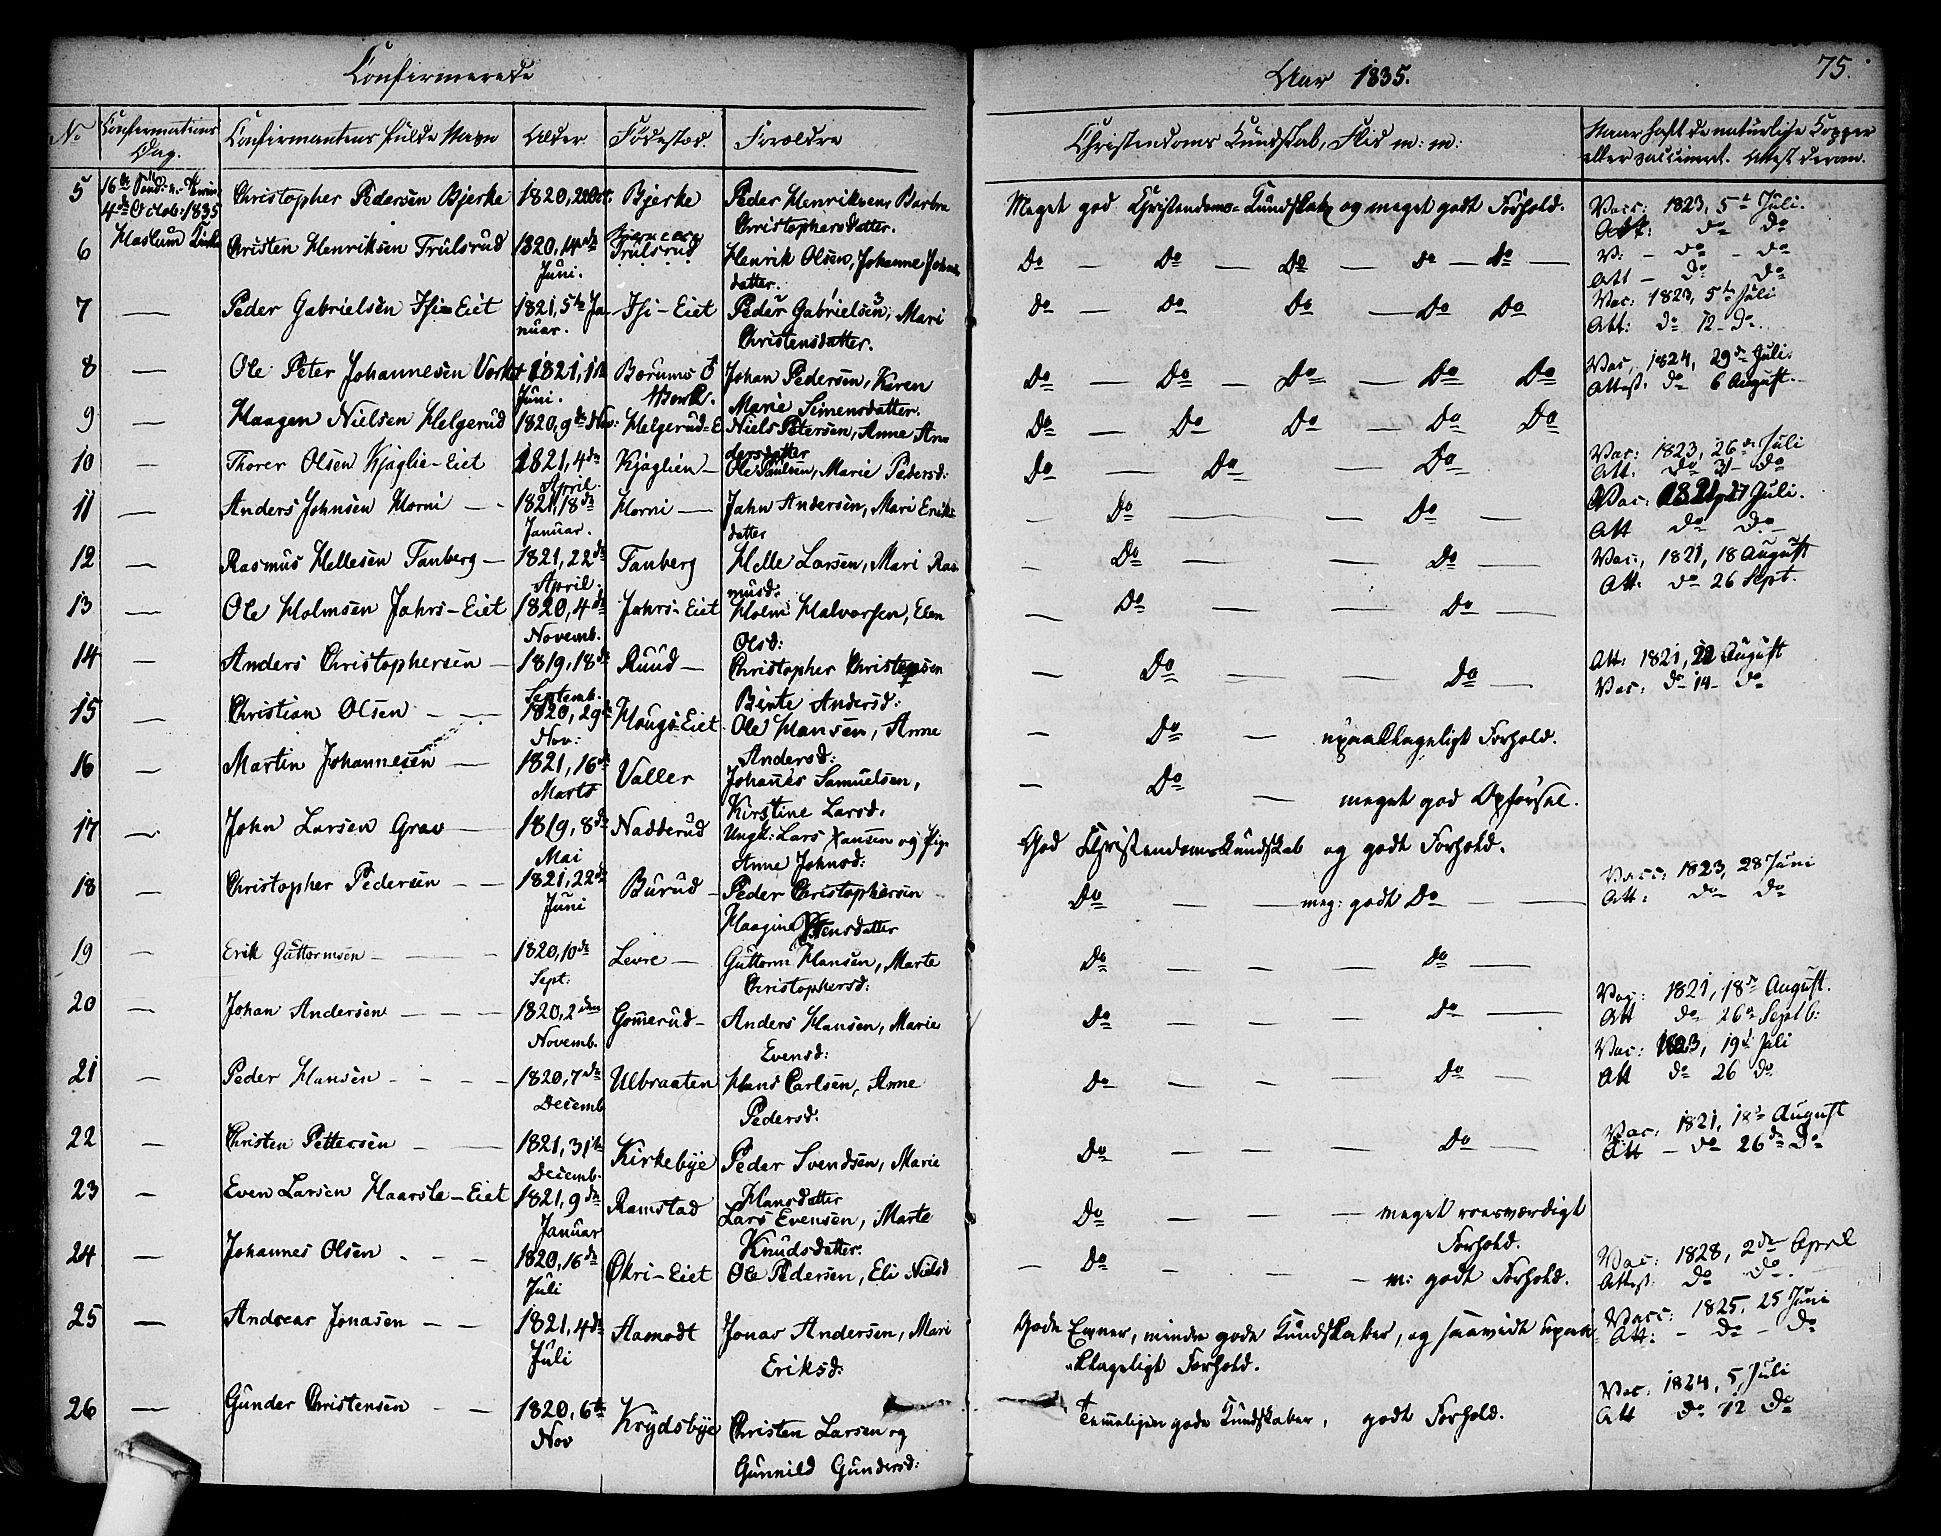 Confirmerede
Aar 1835.
75.
No
Confirmations Dag.
Confirmantens fulde Navn
Alder
Födested.
Foroeldre
Christendoms Kundskab, Flid m: m:
Naar haft de naturlige Kopper
eller vaccineret. Attest derom.
5 16de Sönd: e: Trin: 4de Octob: 1835 Haslum Kirke Christopher Pedersen Bjerke 1820, Bjerke Peder Henriksen, Barbra Christophersdatter. Meget god Christendoms-Kundskab og meget godt Forhold. Vacc: 1823, 5te Juli. Att: do do
6 Christen Henriksen Frülsrud 1820, 14de Juni. Frülsrud Henrik Olsen, Johanne Johns datter. Do — Do — Do — Do — Do — V: — do — do Att — do do
7 — Peder Gabrielsen Isi-Eiet 1821, 5te Januar. Isi-Eiet Peder Gabrielsen, Mari Christensdatter. Do Do Do Do Do Vac: 1823, 5te Juli Att: do 12 do.
8 — Ole Peter Johannesen Værket 1821, 1ste Juni. Bærums Værk. Johan Pedersen, Karen Marie Simensdatter. Do — Do — Do — Do Do Vac, 1824, 29de Juli. Attest. do 6 August.
9 — Haagen Nielsen Helgerud 1820, 9de Nov: Helgerud-E Niels Petersen, Anne Andersdatter Do — Do Do Do Do
10 — Thorer Olsen Kjaglie-Eiet 1821, 4de April. Kjaglien — Ole Paulsen, Marie Pedersd: Do — Do — Do Vac: 1823, 26de Juli Att: do 31 do
11 — Anders Johnsen Horni — 1821, 18de Januar. Horni — John Andersen, Mari Eriksdatter — Do — — Do — Vac: 1821, Juli. Att do do
12 — Rasmus Hellesen Tanberg — 1821, 22de April. Tanberg Helle Larsen, Mari Rasmusd: — Do — — Do — Vac:, 1821, 18 August Att: do 26 Sept.
13 — Ole Holmsen Jahrs-Eiet 1820, 4de Novemb. Jahrs-Eiet Holm Halvorsen, Elen Olsd: — Do — — Do —
14 — Anders Christophersen — 1819, 18de Septemb. Ruud — Christopher Christensen Birte Andersd: — Do — — Do — Att: 1821, 22 August Vac: do 14 do
15 — Christian Olsen — — 1820, 29de Nov: Haugs-Eiet Ole Hansen, Anne Andersd: — Do — upaaklageligt Forhold.
16 — Martin Johannesen — 1821, 16de Marts Valler Johanes Samuelsen, Kirstine Larsd. — Do — meget god Opförsel.
17 — John Larsen Grav — 1819, 8de Mai Nadderud Ungk: Lars Hansen og Pig. Anne Johnsd: God Christendoms Kundskab og godt Forhold.
18 — Christopher Pedersen — — 1821, 22de Juni Burud — Peder Christophersen Haagine Do — — meg: godt Do — — Vacc: 1823, 28 Juni Att: do do
19 — Erik Guttormsen — — — 1820, 10de Sept: Levre — Guttorm Hansen, Marte Christophersd: Do — — — Do —
20 — Johan Andersen — — — 1820, 2den Novemb. Gomerud — Anders Hansen, Marie Evensd: Do — — — Do — Vac: 1821, 18de August. Att do 26de Septb:
21 — Peder Hansen — — — 1820, 7de Decemb Ulbraaten Hans Carlsen, Anne Pedersd: Do — — — Do — Vac: 1823, 19de Juli Att do 26 do
22 — Christen Pettersen — — 1821, 31te Decemb. Kirkebye Peder Svendsen, Marie Hansdatter Do — — — Do — Vac: 1821, 18de August Att — do 26de Do
23 — Even Larsen Haarsle-Eiet 1821, 9de Januar Ramstad Lars Evensen, Marte Knudsdatter. Do — — — meget roesværdigt Forhold.
24 — Johannes Olsen — — — 1820, 16de Juli Økri-Eiet Ole Pedersen, Eli Nielsd — Do — — — m: godt Forhold. Vac: 1828, 2den April Attest: do do.
25 — Andreas Jonasen — — 1821, 4de Juli Aamodt Jonas Andersen, Mari Eriksd: Gode Evner, mindre gode Kundskaber, og saavidt upaa klageligt Forhold. Vacc: 1825, 25 Juni Att: — do — do
26 — Gunder Christensen — — 1820, 6te Nov Krydsbye Christen Larsen og Gunnild Gundersd: Temmeligen gode Kundskaber, godt Forhold. Vac: 1824, 5 Juli Att do 12 do